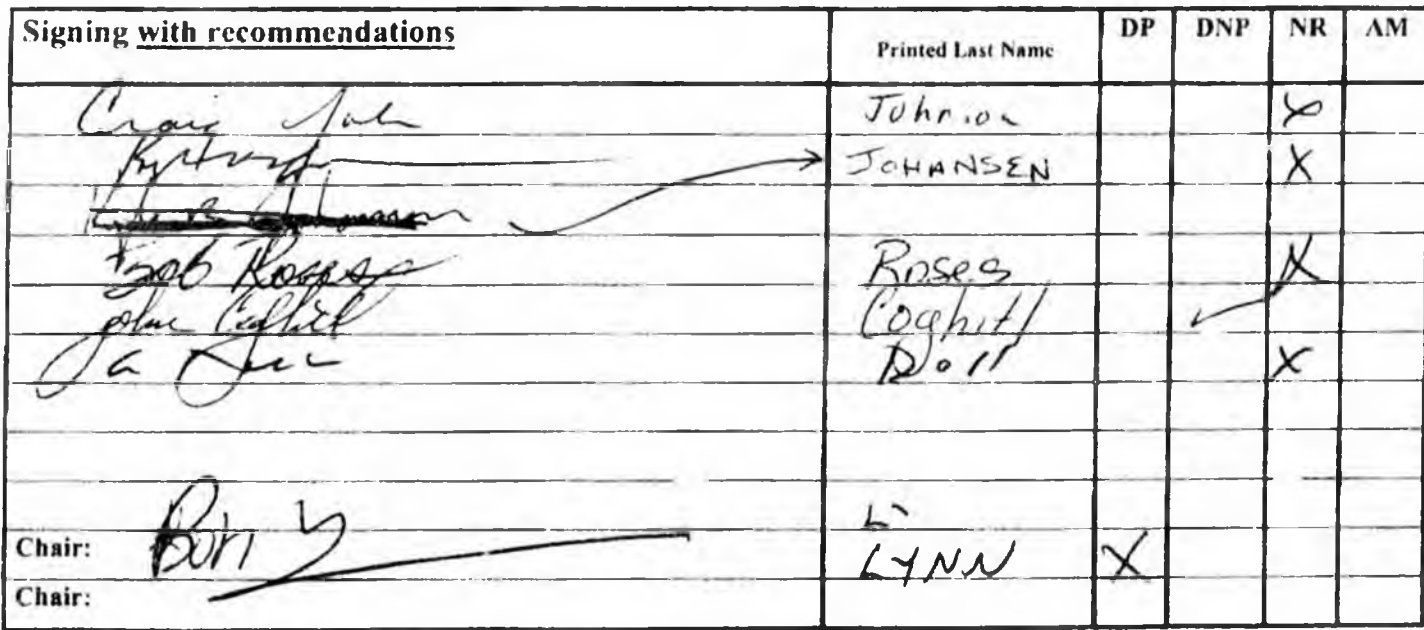 Signing with recommendations Printed Last Name DP DNP NR AM
Craig Joh Johnson X
JOHANSEN X
Bob Roses Roses X
John Coghill Coghill
Doll X
L
Chair: Bob Ly LYNN X
Chair: